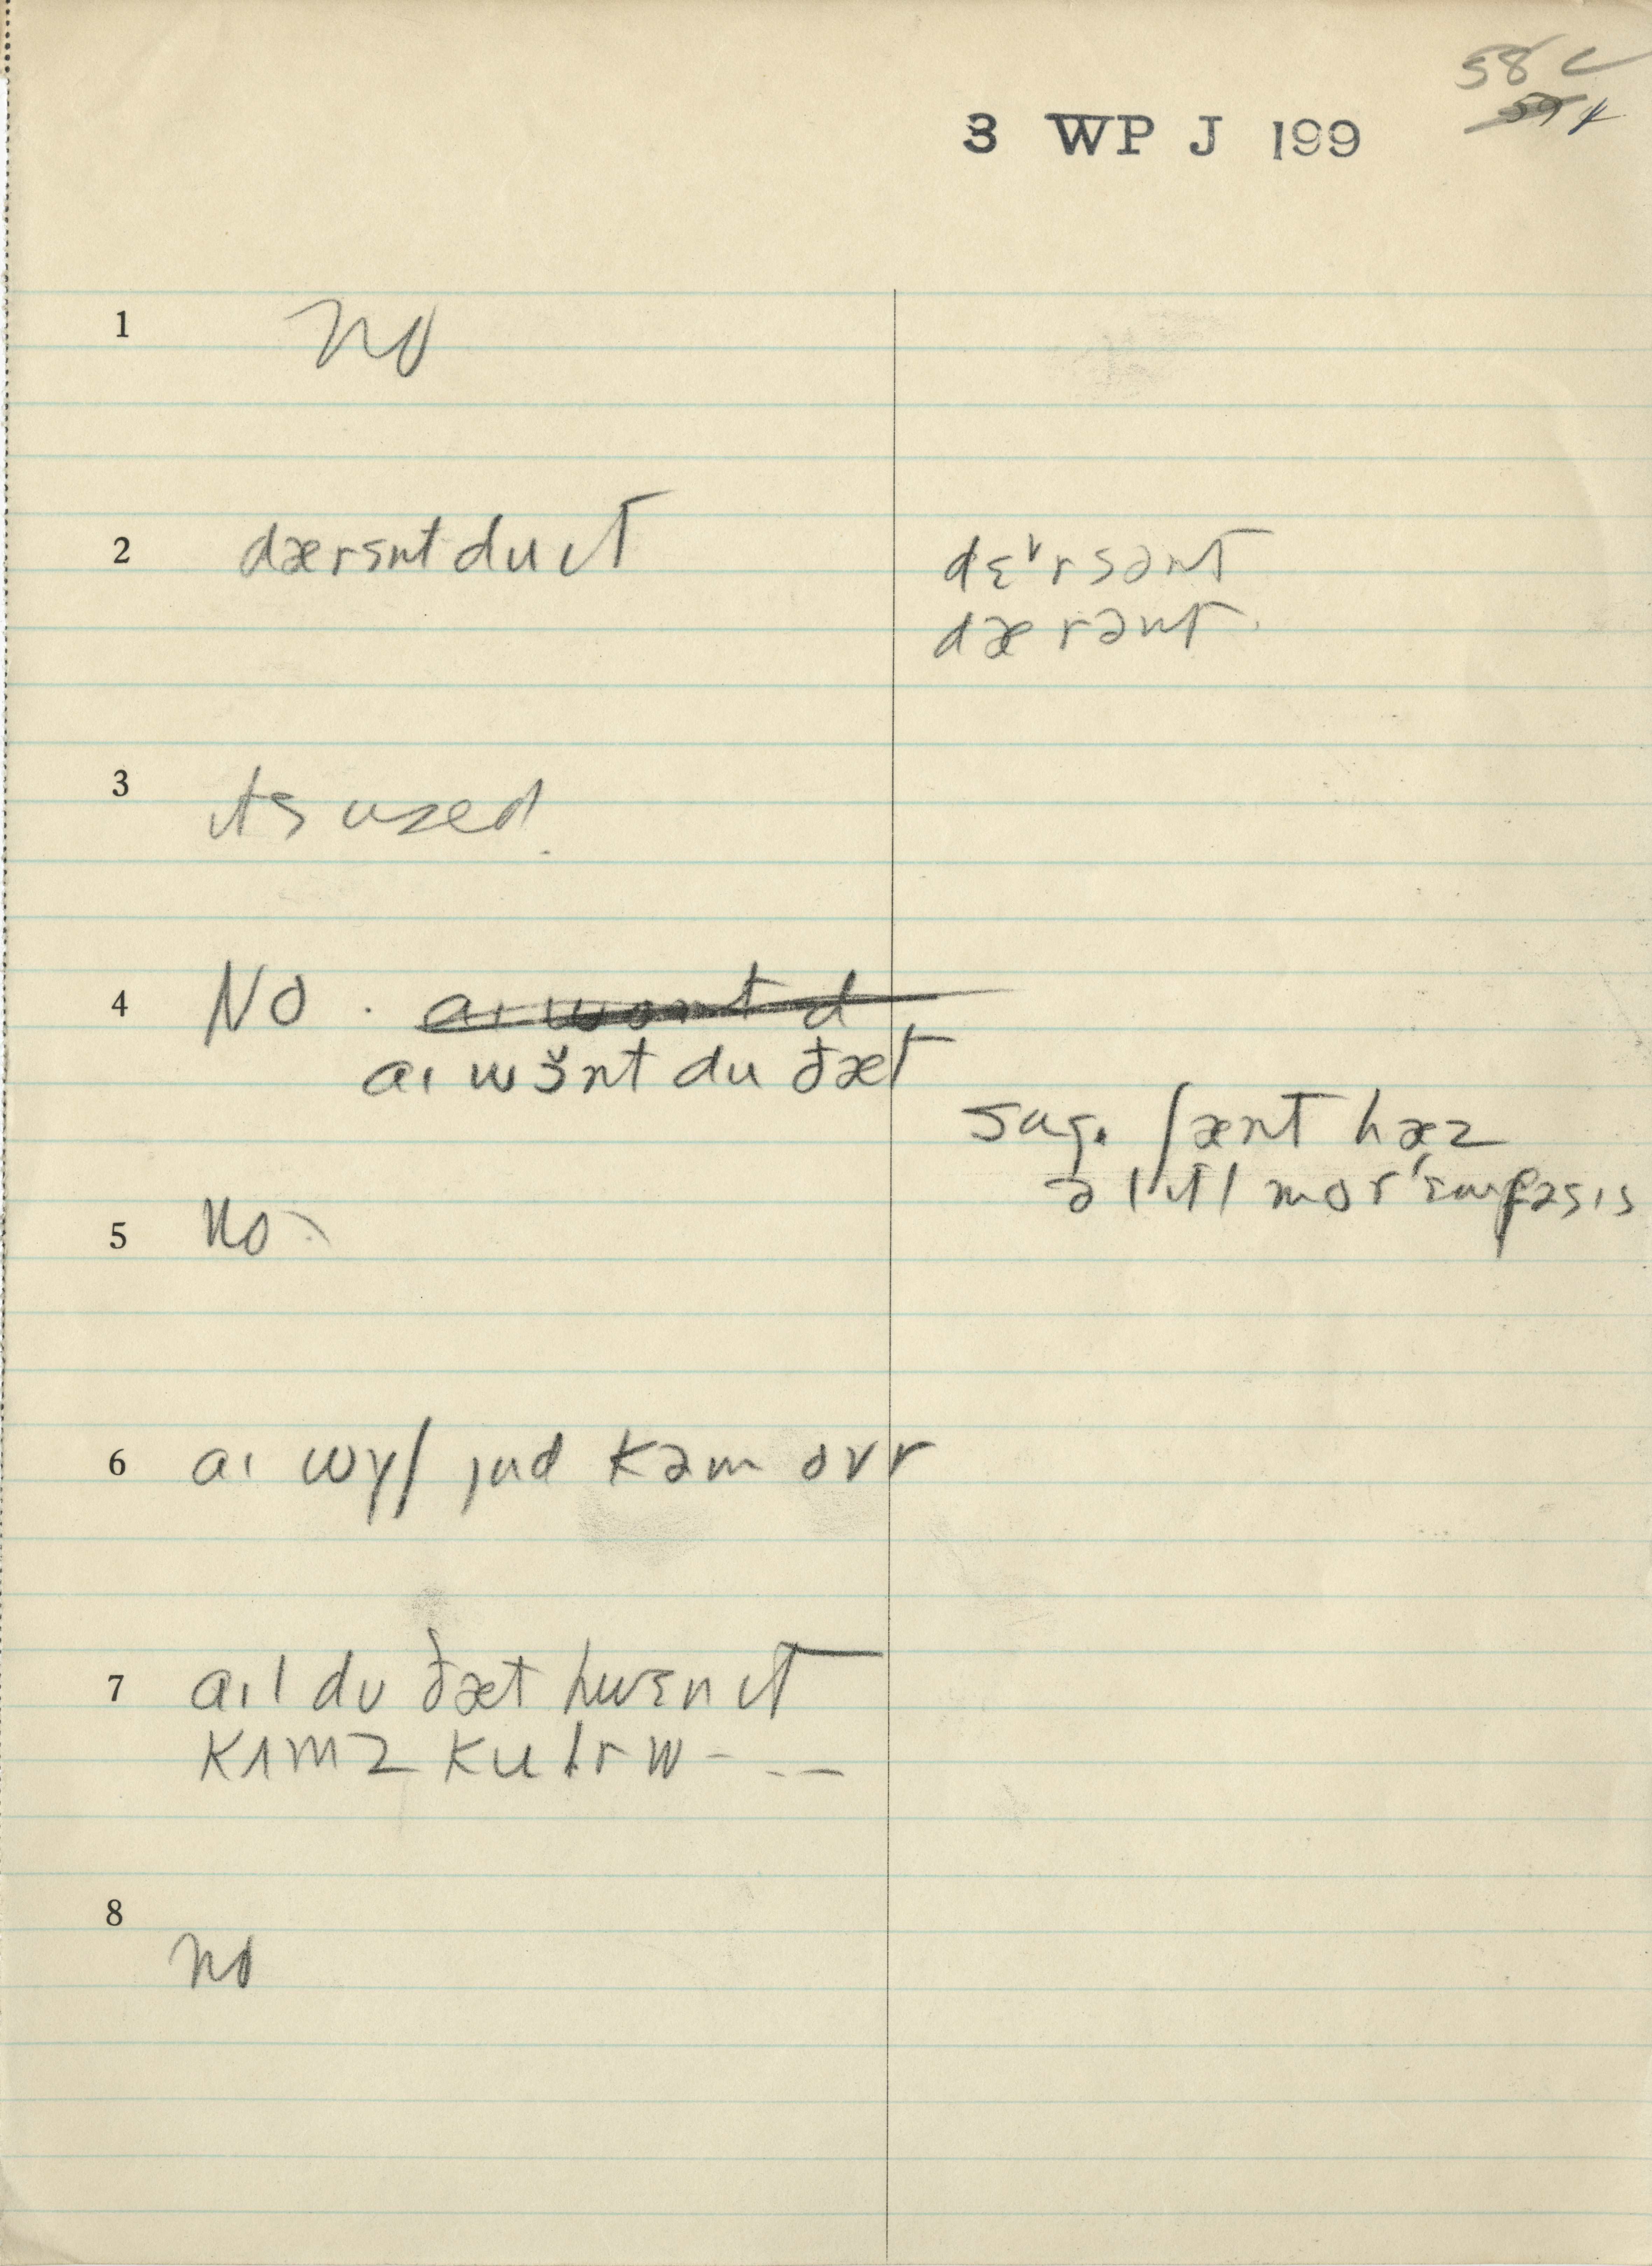 58 C
3 WP J 199
1 no
2 dærsnt du ɩt
dɛˈrsənt
dærənt.
3 its used
4 No . aɩ wont d
aɩ wɜ̆nt du ðæt
sug. ʃænt hæz
ə lɩtl mor ˈɛmfəsɩs
5 no
6 aɩ wɣʃ jud kəm ovr
7 aɩl du ðæt hwɛn ɩt
kʌmz kulr w- --
8 no